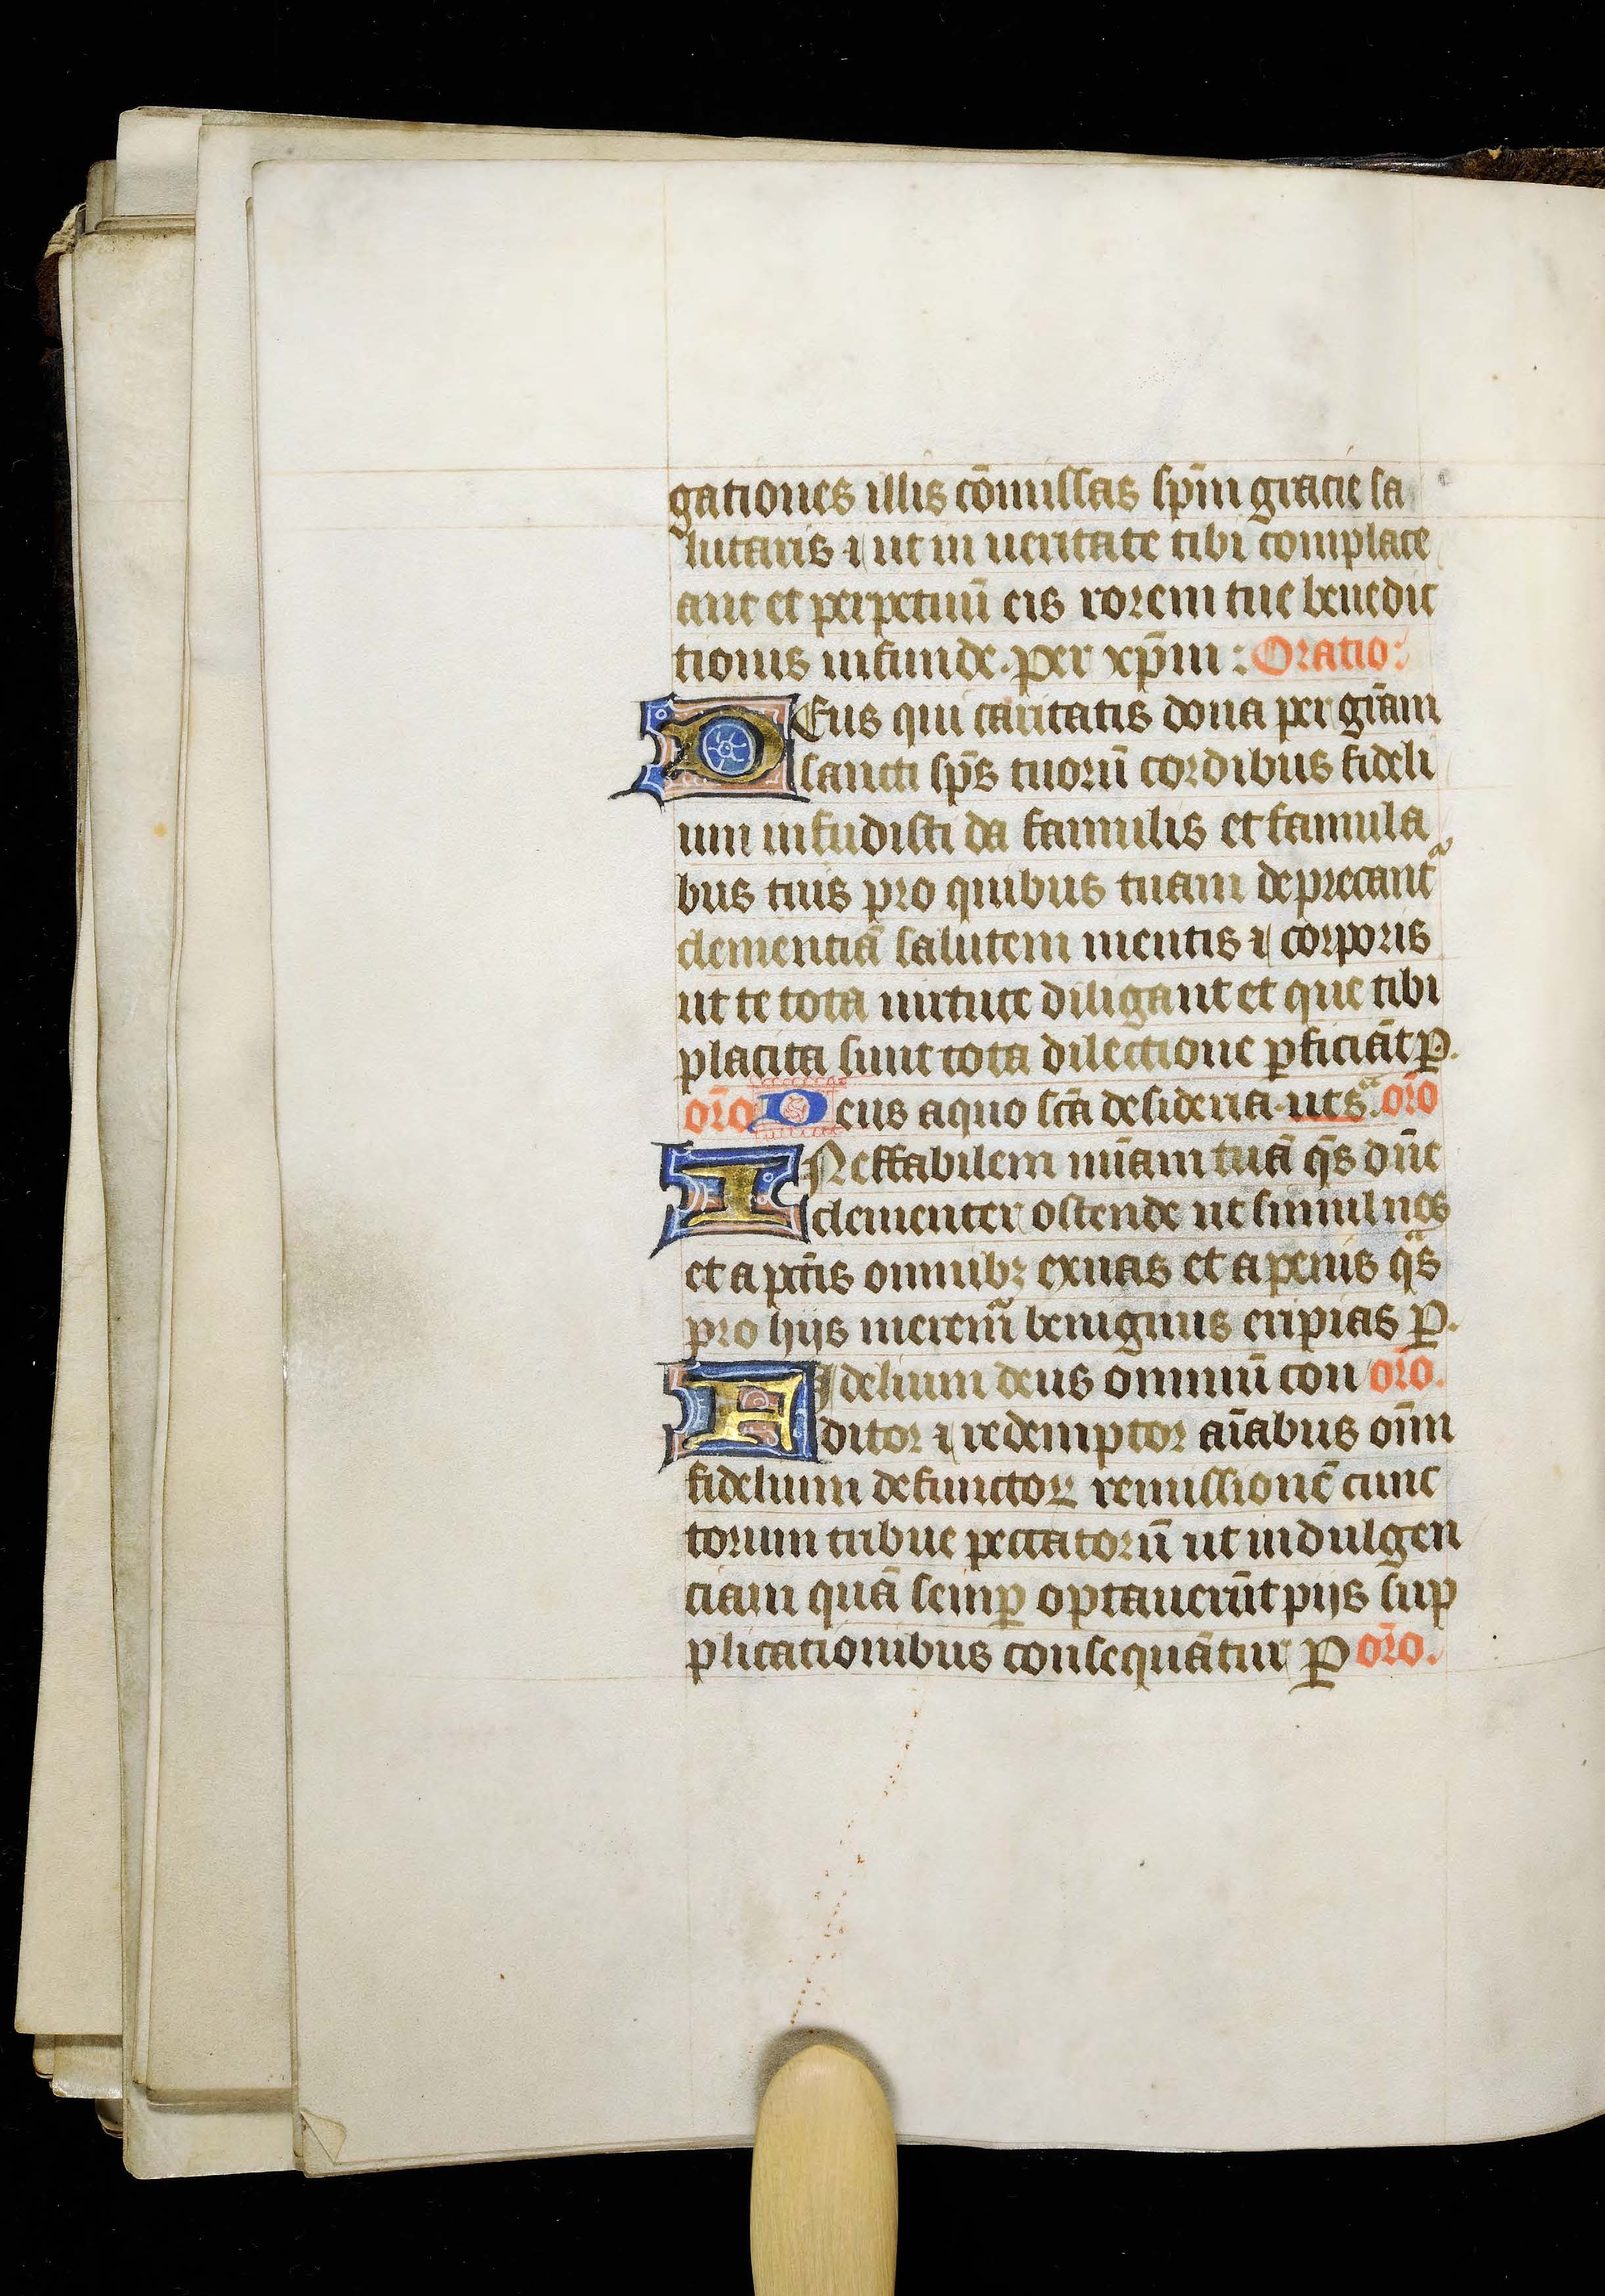 gationes illis cōmissas sp̄m gracie sa
lutaris ⁊ ut in ueritate tibi complace
ant et perpetuū eis rorem tue benedic
tionis infunde. per xp̄m : Oratio:
DEus qui caritatis dona per gr̄am
sancti sp̄s tuorū cordibus fideli
um infudisti da famulis et famula
bus tuis pro quibus tuam deprecant᷑
clementiā salutem mentis ⁊ corporis
ut te tota uirtute diligant et que tibi
placita sunt tota dilectione ꝑficiāt ꝑ.
or̄o Deus a quo sc̄a desideria. ut sᵃ. or̄o
INeffabilem mi̅am tuā q̄s dn̄e
clementer ostende ut simul nos
et a pctīs omnibꝫ exuas et a penis qᵃs
pro hijs merem᷑ benignus eripias ꝑ.
FIdelium deus omniū con or̄o.
ditor ⁊ redemptor aīabus oīm
fidelium defunctoꝝ remissionē cunc
torum tribue peccatorū ut indulgen
ciam quā semꝑ optauerūt pijs sup
plicationibus consequātur ꝑ or̄o.